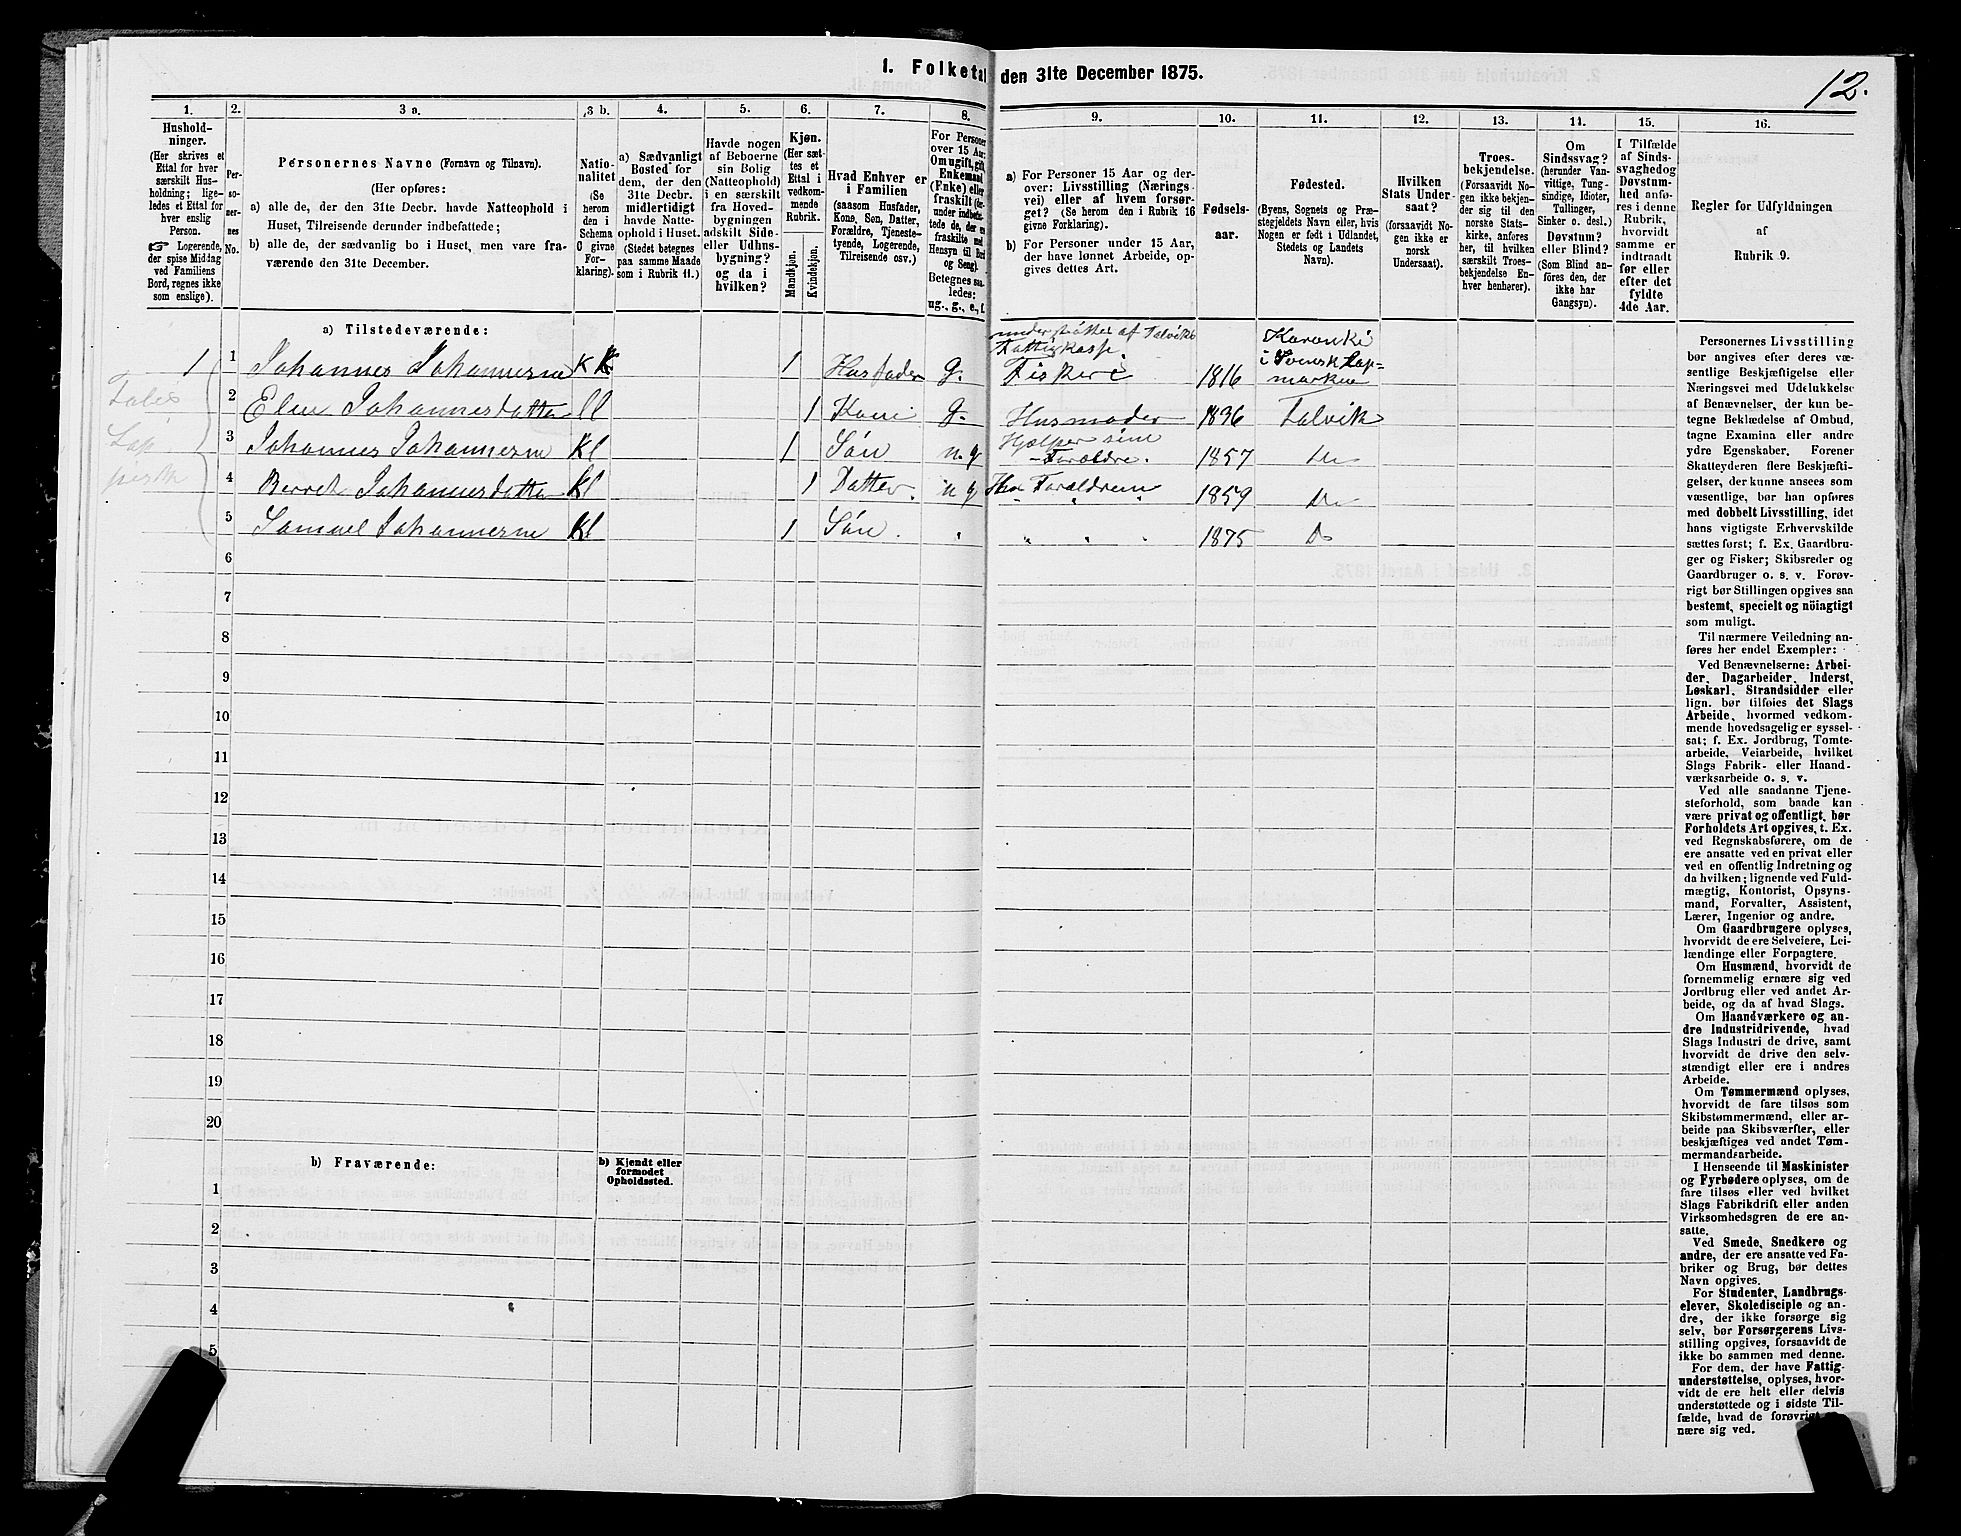 1. Folketal den 31te December 1875.
12.
1.
Hushold-
ninger.
(Her skrives et
Ettal for hver
særskilt Hus-
holdning; lige-
ledes et Ettal for
hver enslig
Person.
☞ Logerende,
der spise Middag
ved Familiens
Bord, regnes ikke
som enslige).
2.
Per-
so-
ner-
nes
No.
3 a.
Personernes Navne (Fornavn og Tilnavn).
(Her opføres:
a) alle de, der den 31te Decbr. havde Natteophold i
Huset, Tilreisende derunder indbefattede;
b) alle de, der sædvanlig bo i Huset, men vare fra-
værende den 31te December.
3 b.
Natio-
nalitet
(Se
herom
den i
Schema
O givne
For-
klaring).
4.
a) Sædvanligt
Bosted for
dem, der den
31te Decbr.
midlertidigt
havde Natte-
ophold i Huset.
(Stedet betegnes
paa samme Maade
som i Rubrik 11.)
5.
Havde nogen
af Beboerne
sin Bolig
(Natteophold)
i en særskilt
fra Hoved-
bygningen
adskilt Side-
eller Udhus-
bygning?
og da i
hvilken?
6.
Kjøn.
(Her sæt-
tes et
Ettal i
vedkom-
mende
Rubrik.
Mandkjøn.
Kvindekjøn.
7.
Hvad Enhver er
i Familien
(saasom Husfader,
Kone, Søn, Datter,
Forældre, Tjeneste-
tyende, Logerende,
Tilreisende osv.)
8.
For Personer
over 15 Aar:
Om ugift, gift,
Enkemand
(Enke) eller
fraskilt
Betegnes saa-
ledes:
ug., g., e., f.
9.
a) For Personer 15 Aar og der-
over: Livsstilling (Nærings-
vei) eller af hvem forsør-
get? (Se herom den i Rubrik 16
givne Forklaring).
b) For Personer under 15 Aar,
der have lønnet Arbeide, op-
gives dettes Art.
10.
Fødsels-
aar.
11.
Fødested.
(Byens, Sognets og Præ-
stegjeldets Navn eller, hvis
Nogen er født i Udlandet,
Stedets og Landets
Navn).
12.
Hvilken
Stats Under-
saat?
(forsaavidt No-
gen ikke er
norsk
Undersaat).
13.
Troes-
bekjendelse.
(Forsaavidt No-
gen ikke bekjen-
der sig til den
norske Stats-
kirke, anføres
her, til hvilken
særskilt Troes-
bekjendelse En-
hver henhører).
14.
Om
Sindssvag?
(herunder Van-
vittige, Tung-
sindige, Idioter,
Tullinger,
Sinker o. desl.)
Døvstum?
eller Blind?
(Som Blind an-
føres den, der
ikke har
Gangsyn).
15.
I Tilfælde
af Sinds-
svaghed og
Døvstum-
hed anfø-
res i denne
Rubrik,
hvorvidt
samme er
indtraadt
før eller
efter det
fyldte
4de Aar.
16.
Regler for Udfyldningen
af
Rubrik 9.
a) Tilstedeværende:
1 1 Johannes Johannesen K K 1 Husfader g. understøttet af Talviks
Fattigkasse.
Fiskeri 1816 Karunki
i Svensk Lap-
marken
2 Elen Johannesdatter ll 1 Kone g. Husmoder 1836 Talvik
3 Johannes Johannesen Kl 1 Søn u. g Hjelper sine
Forældre. 1857 Do
4 Berret Johannesdatter Kl 1 Datter. u g Hos Forældrene 1859 Do
5 Samuel Johannesen Kl 1 Søn. " " " " 1875 Do
6
7
8
9
10
11
12
13
14
15
16
17
18
19
20
b) Fraværende:
b) Kjendt eller
formodet
Opholdssted.
1
2
3
4
5
Personernes Livsstilling
bør angives efter deres væ-
sentlige Beskjæftigelse eller
Næringsvei med Udelukkelse
af Benævnelser, der kun be-
tegne Beklædelse af Ombud,
tagne Examina eller andre
ydre Egenskaber. Forener
Skatteyderen flere Beskjæfti-
gelser, der kunne ansees som
væsentlige, bør han opføres
med dobbelt Livsstilling, idet
hans vigtigste Erhvervskilde
sættes først; f. Ex. Gaardbru-
ger og Fisker; Skibsreder og
Gaardbruger o. s. v. Forøv-
rigt bør Stillingen opgives saa
bestemt, specielt og nöiagtigt
som muligt.
Til nærmere Veiledning an-
føres her endel Exempler:
Ved Benævnelserne: Arbei-
der, Dagarbeider, Inderst,
Løskarl, Strandsidder eller
lign. bør tilføies det Slags
Arbeide, hvormed vedkom-
mende hovedsagelig er syssel-
sat; f. Ex. Jordbrug, Tomte-
arbeide, Veiarbeide, hvilket
Slags Fabrik- eller Haand-
værksarbeide o. s. v.
Ved alle saadanne Tjene-
steforhold, som baade kan
være privat og offentligt, bør
Forholdets Art opgives, t. Ex.
ved Regnskabsførere, om de
ere ansatte ved en privat eller
ved en offentlig Indretning og
da hvilken; lignende ved Fuld-
mægtig, Kontorist, Opsyns-
mand, Forvalter, Assistent,
Lærer, Ingeniør og andre.
Om Gaardbrugere oplyses,
hvorvidt de ere Selveiere, Lei-
lændinge eller Forpagtere.
Om Husmænd, hvorvidt de
fornemmelig ernære sig ved
Jordbrug eller ved andet Ar-
beide, og da af hvad Slags.
Om Haandværkere og an-
dre Industridrivende, hvad
Slags Industri de drive, samt
hvorvidt de drive den selv-
stændigt eller ere i andres
Arbeide.
Om Tømmermænd oplyses,
hvorvidt de fare tilsøs som
Skibstømmermænd, eller ar-
beide paa Skibsværfter, eller
beskjæftiges ved andet Tøm-
mermandsarbeide.
I Henseende til Maskinister
og Fyrbødere oplyses, om de
fare tilsøs eller ved hvilket
Slags Fabrikdrift eller anden
Virksomhedsgren de ere an-
satte.
Ved Smede, Snedkere og
andre, der ere ansatte ved Fa-
briker og Brug, bør dettes
Navn opgives.
For Studenter, Landbrugs-
elever, Skoledisciple og an-
dre, der ikke forsørge sig
selv, bør Forsørgerens Livs-
stilling opgives, forsaavidt de
ikke bo sammen med denne.
For dem, der have Fattig-
understøttelse, oplyses, hvor-
vidt de ere helt eller delvis
understøttede og i sidste Til-
fælde, hvad de forøvrigt
nære sig ved.